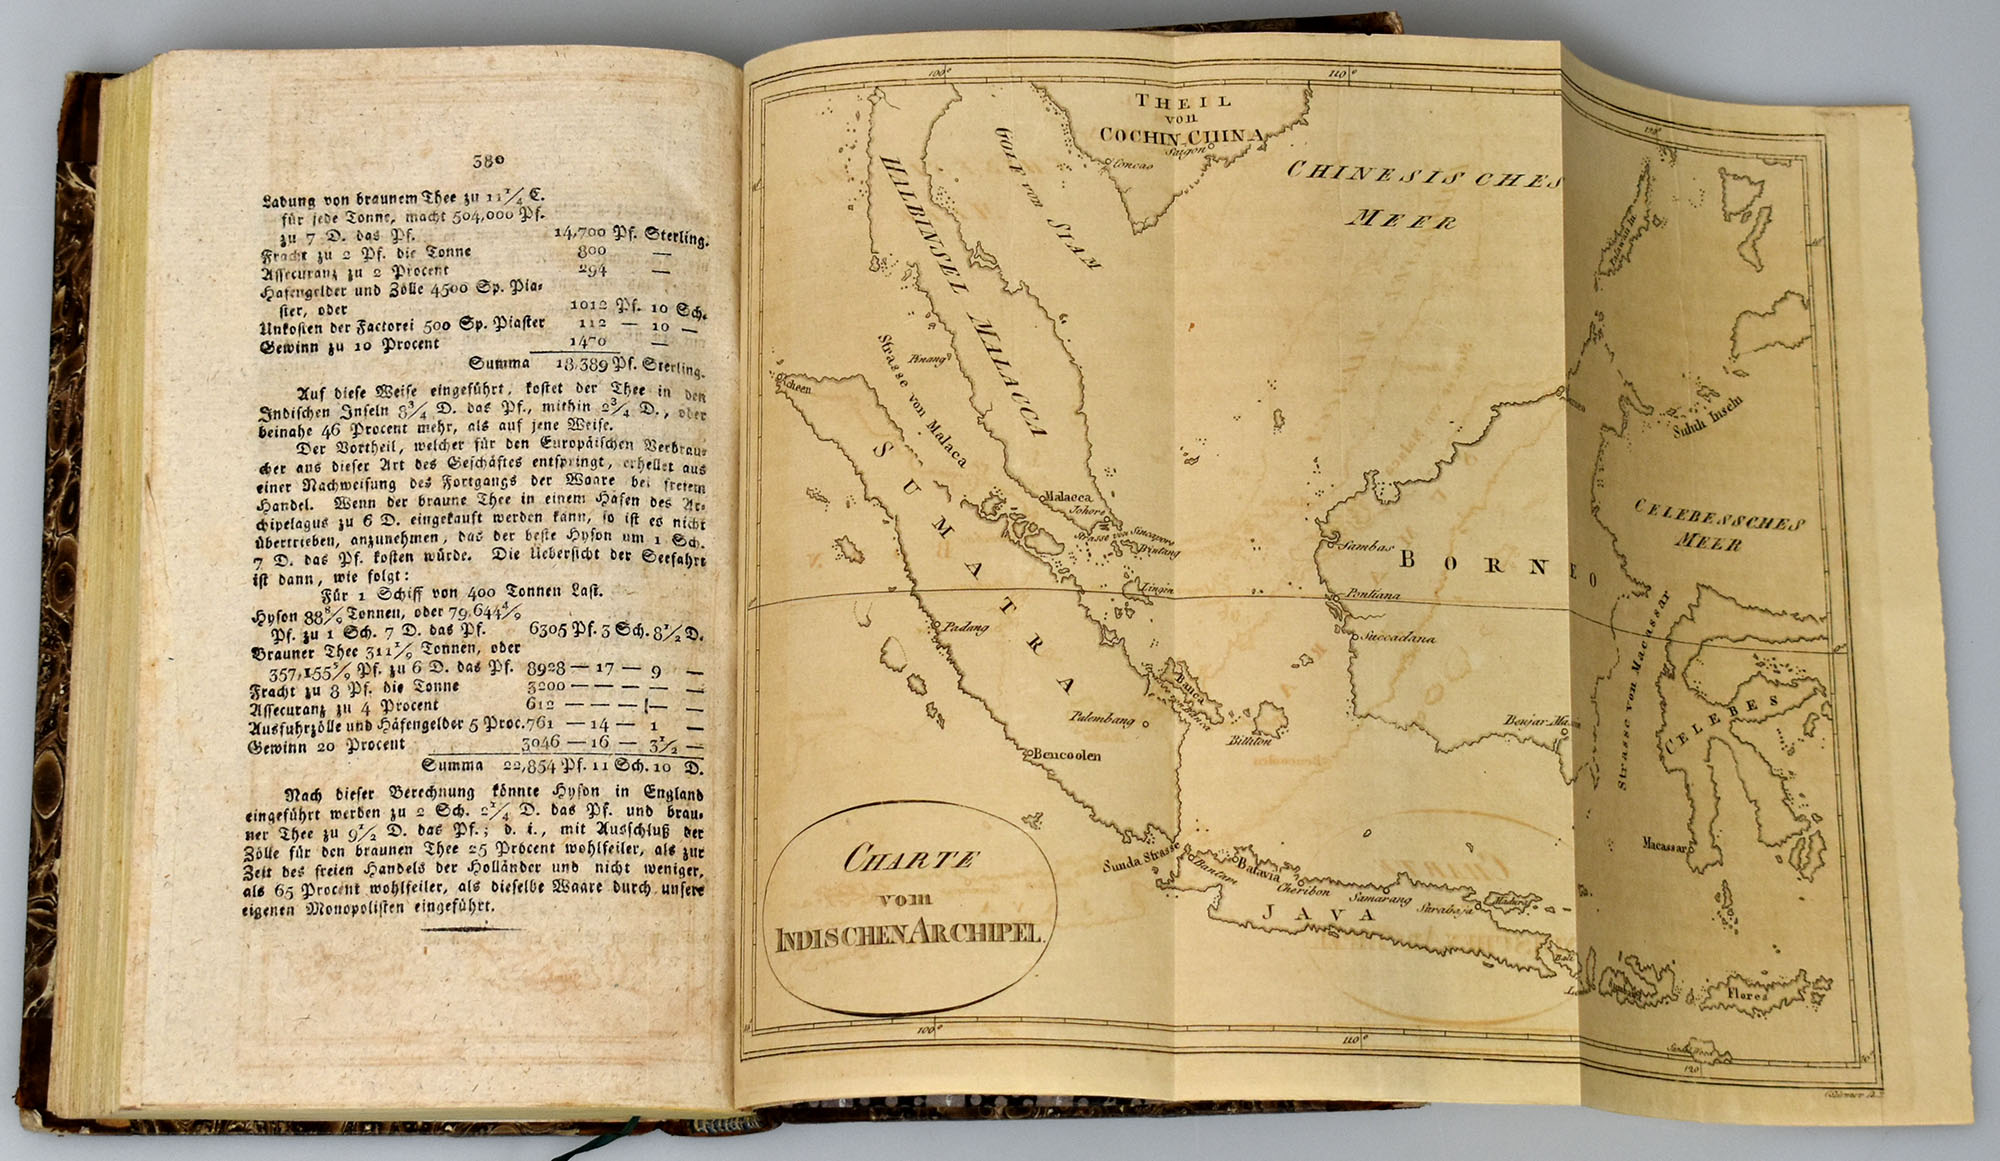 380
Ladung von braunem Thee zu 11 1/4 C.
für jede Tonne, macht 504,000 Pf.
zu 7 D. das Pf. 14,700 Pf. Sterling.
Fracht zu 2 Pf. die Tonne 800 —
Assecuranz zu 2 Procent 294 —
Hafengelder und Zölle 4500 Sp. Pia-
ster, oder 1012 Pf. 10 Sch.
Unkosten der Factorei 500 Sp. Piaster 112 — 10 —
Gewinn zu 10 Procent 1470 —
Summa 18,389 Pf. Sterling.
Auf diese Weise eingeführt, kostet der Thee in den
Indischen Inseln 8 3/4 D. das Pf., mithin 2 3/4 D., oder
beinahe 46 Procent mehr, als auf jene Weise.
Der Vortheil, welcher für den Europäischen Verbrau-
cher aus dieser Art des Geschäftes entspringt, erhellet aus
einer Nachweisung des Fortgangs der Waare bei freiem
Handel. Wenn der braune Thee in einem Häfen des Ar-
chipelagus zu 6 D. eingekauft werden kann, so ist es nicht
übertrieben, anzunehmen, das der beste Hyson um 1 Sch.
7 D. das Pf. kosten würde. Die Uebersicht der Seefahrt
ist dann, wie folgt:
Für 1 Schiff von 400 Tonnen Last.
Hyson 88 8/9 Tonnen, oder 79,644 4/9
Pf. zu 1 Sch. 7 D. das Pf. 6305 Pf. 3 Sch. 8 1/2 D.
Brauner Thee 311 1/9 Tonnen, oder
357,155 5/9 Pf. zu 6 D. das Pf. 8928 — 17 — 9 —
Fracht zu 8 Pf. die Tonne 3200 — — — — —
Assecuranz zu 4 Procent 612 — — — — —
Ausfuhrzölle und Häfengelder 5 Proc. 761 — 14 — 1 —
Gewinn 20 Procent 3046 — 16 — 3 1/2 —
Summa 22,854 Pf. 11 Sch. 10 D.
Nach dieser Berechnung könnte Hyson in England
eingeführt werden zu 2 Sch. 2 1/4 D. das Pf. und brau-
ner Thee zu 9 1/2 D. das Pf.; d. i., mit Ausschluß der
Zölle für den braunen Thee 25 Procent wohlfeiler, als zur
Zeit des freien Handels der Holländer und nicht weniger,
als 65 Procent wohlfeiler, als dieselbe Waare durch unsere
eigenen Monopolisten eingeführt.
100°
110°
120°
THEIL
von
COCHIN CHINA
Saigon
Concao
GOLF von SIAM
CHINESISCHES
MEER
HALBINSEL MALACCA
Pinang
Strasse von Malaca
Malacca
Johore
Strasse von Sincapore
Bintang
Lingin
Acheen
SUMATRA
Padang
Palembang
Bencoolen
Banca
Billiton
BORNEO
Borneo
Sambas
Pontiana
Succadana
Benjar Massin
Palawan In.
Suluh Inseln
CELEBESSCHES
MEER
Strasse von Macassar
CELEBES
Macassar
Sunda Strasse
Bantam
Batavia
Cheribon
Samarang
Surabaja
Madura
JAVA
Bali
Flores
Sandelwood
CHARTE
vom
INDISCHEN ARCHIPEL.
100°
110°
120